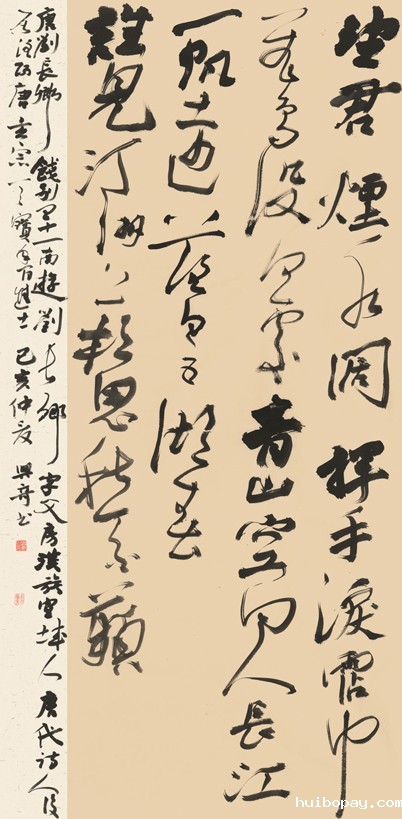 望君煙水闊揮手淚霑巾
飛鳥沒何處青山空向人長江
一帆遠落日五湖春
誰見汀洲上相思愁白蘋
唐劉長卿餞別王十一南遊劉長卿字文房漢族宣城人唐代詩人後
居洛陽唐玄宗天寶年間進士 己亥仲夏 興奇书
huibopay.com